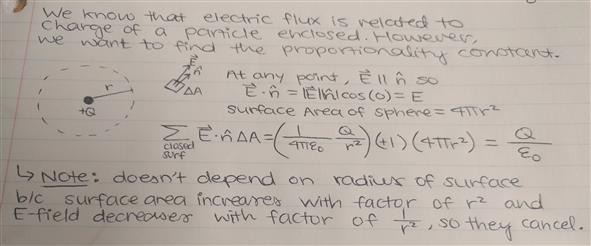 We know that electric flux is related to
charge of a particle enclosed. However,
we want to find the proportionality constant.
r
+Q
E⃗
n̂
ΔA
At any point, E⃗ ∥ n̂ so
E⃗ · n̂ = |E||n̂|cos(0) = E
Surface Area of Sphere = 4πr²
∑ closed surf E⃗ · n̂ ΔA = (1/4πε₀ Q/r²)(+1)(4πr²) = Q/ε₀
↳ Note: doesn't depend on radius of surface
b/c surface area increases with factor of r² and
E-field decreases with factor of 1/r², so they cancel.